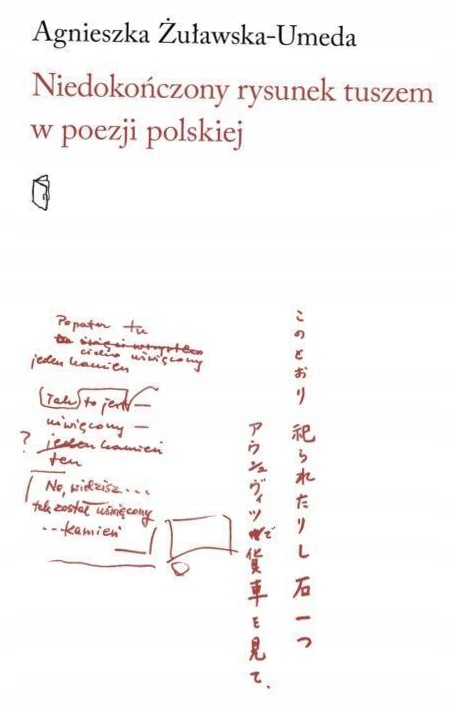 Agnieszka Żuławska-Umeda
Niedokończony rysunek tuszem
w poezji polskiej
Popatrz tu
cicho uświęcony
jeden kamień
(Tak) to jest —
uświęcony —
? jeden kamień
ten
No, widzisz...
tak został uświęcony
...kamień
このとおり 祀られたりし 石一つ
アウシュヴィツで貨車を見て、